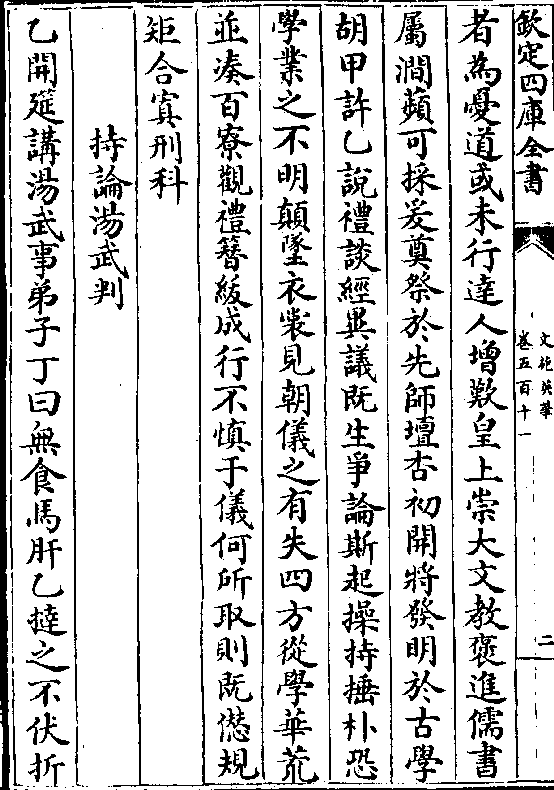 欽定四庫全書
文苑英華
卷五百十一
二
者為憂道或未行達人增歎皇上崇大文教褒進儒書
屬澗蘋可採爰奠祭於先師壇杏初開將發明於古學
胡甲許乙說禮談經異議既生爭論斯起操持捶朴恐
學業之不明顛墜衣裳見朝儀之有失四方從學華荒
並凑百寮觀禮簪紱成行不慎于儀何所取則既愆規
矩合寘刑科
持論湯武判
乙開筵講湯武事弟子丁曰無食馬肝乙撻之不伏折